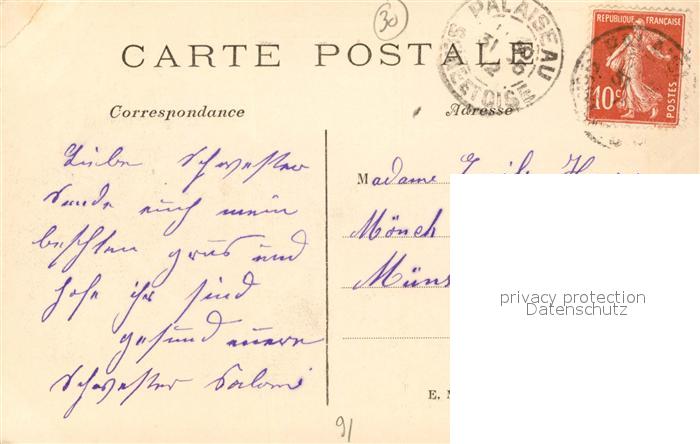 30
CARTE POSTALE
PALAISEAU
31 12
S. & OISE
REPUBLIQUE FRANÇAISE
10c POSTES
Correspondance
Adresse
Liebe Schwester
Sende euch mein
beschten grus und
hofe ihr sind
gesund euere
Schwester Salomi
Madame
Mönch
Müns
privacy protection
Datenschutz
E. M
91